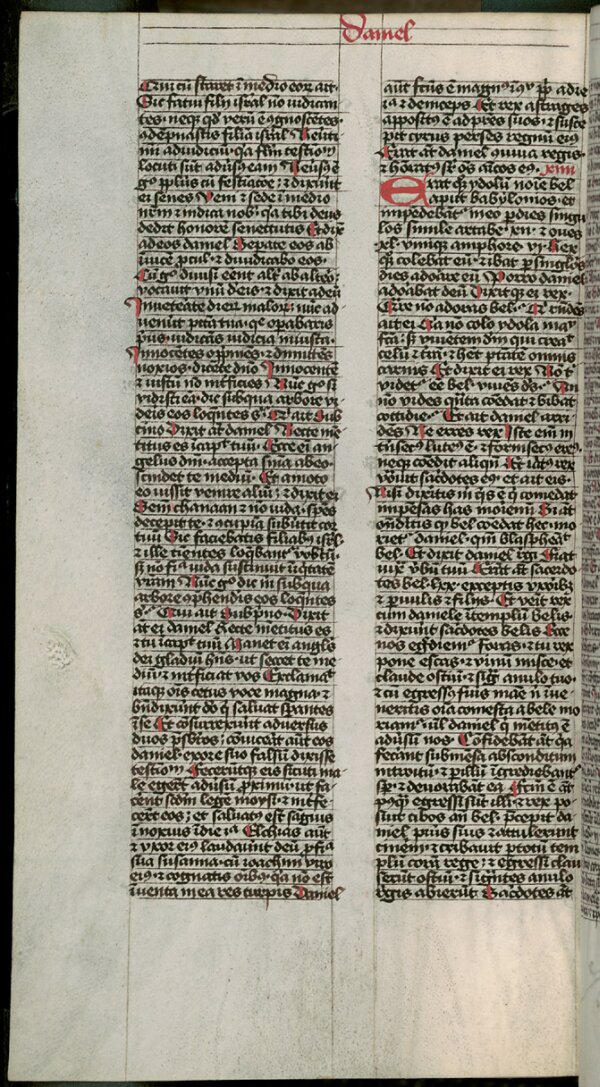 Daniel
Qui cū staret ī medio eor ait·
Sic fatui filii isrl̄ no iudican
tes· neq; qd̄ verū ē ꝯgnoscētes·
adēpnastis filiā isrl̄ Reuti
mi ad iudiciū· qa flm̄ testioꝫ
locuti sūt adūs eam Reūsꝰ ē
gͦ pplūs cū festiatōe· ⁊ dixinīt
ei senes Veni ⁊ sede ī medio
nr̄m ⁊ indica nob· qa tibi deus
dedit honore senettutis Et dix
ad eos daniel Separate eos ab
iuicē pcul· ⁊ diiudicabo eos·
Cū gͦ diuisi eēnt altͬ ab altēo·
vocauit vnū deīs· ⁊ dixit ad eū
Inueteate dieꝝ maloꝝ· nūc ad
venūt pctā tua· qͤ opabaris
pus· iudicās iudicia iniusta·
Innocētes oppmēs· ⁊ dimittēs
noxios· dicēte dn̄o Innocentē
⁊ iustū nō int̄ficies Nūc gͦ si
vidisti eā· dic sub qua arbore vi
deis eos loqntes sͥ· Qͥ ait Sub
cino Dixit at̄ daniel Recte mē
titus es ī capͭ tuū· Ecce eī an
gelus dni· accepta sn̄ia ab eo·
scindet te mediū· Et amoto
eo iussit venire aliū· ⁊ dixit ei
Sem chanaan ⁊ nō iuda· spēs
decepit te· ⁊ ꝯcupīa subūtit cor
tuū Sic faciebatis filiabꝰ isrl̄·
⁊ ille timentes loqbantͬ vobīs·
sꝫ nō fiͣ iuda sustinuit iīqtatē
vram Nūc gͦ dic m̄ sub qua
arbore ꝯphendis eos loqntes
sͥ· Qui ait Sub pͥno· Dixit
at̄ ei daniel Recte mētitus es
⁊ tu ī capͭ tuū Manet eī anglꝰs
dei gladiū hn̄s· ut secet te me
diū· ⁊ int̄ficiat vos Exclamaͭ
itaqꝫ oīs cetus voce magna· ⁊
bn̄dixūnt dō qͥ saluat spantes
ī se Et ꝯsurrexerūt adversus
duos psbros· ꝯuicerāt aūt eos
daniel· ex ore suo falsū dixisse
testioꝫ Fecerūtqꝫ eis sicuti ma
le egerāt adūsū primū· ut fa
cēnt scdm̄ legē moysi· ⁊ int̄fe
cēnt eos· et saluatꝰ est sāguis
ī noxius ī die iͣ Elchias aūt
⁊ vxor eiꝰ laudauīt deū p fiͣ
sua susanna· cū ioachim viro
eiꝰ· ⁊ cognatis oibꝫ· qa nō est
īuenta in ea res turpis Daniel
aūt fctūs ē magnꝰ ī ꝯspū ppli· a die
iͣ ⁊ deinceps Et rex astiages
appositꝰ ē ad pres suos· ⁊ susce
pit cyrus perses regnū eiꝰ
Erat at̄ daniel ꝯuiua regis·
⁊ honoratꝰ sͬ oēs aīcos eꝰ· xiiii
Erat qͥꝫ ydolū noīe bel
apud babylonios· et
impēdebātͬ ī eo p dies singu
los simile artabe· xii· ⁊ oues
·xl· viniqꝫ amphore· vi· Rex
qꝫ colebat eū· ⁊ ibat p singͫlos
dies adorare eū Porro daniel
adorabat deū Dixitqꝫ ei rex
Cur no adoras bel· Qͥ rn̄dēs
ait ei Qa no colo ydola manͧ
fcā· sꝫ viuētem dm̄ qui creaͭ
celū ⁊ trā· ⁊ hꝫ ptātē omnis
carnis Et dixit ei rex No tͥ
videtͬ eē bel· viuēs ds̄· An
nō vides qnta comedat ⁊ bibat
cottidie· Et ait daniel arri
dēs Ne erres rex Iste eī in
trinsecͨ luteꝰ ē· ⁊ forinsecꝰ ereꝰ·
neqꝫ comedit aliqn̄ Et iratꝰ rex
vocauit sacdotes eiꝰ· et ait eis·
Nisi dixitis m̄ qͥs ē qͥ comedat
impēsas has moriemī Si at̄
ondītis qͥ bel comedat hec· mo
rietͬ daniel· qm̄ blasphemāͭ
bel· Et dixit daniel regi Fiat
iux̄ vbū tuū Erāt at̄ sacerdo
tes bel· lxx· exceptis vxoribꝫ
⁊ puulis ⁊ filiis· Et venit rex
cum daniele ī templū belis·
⁊ dixerūt sacdotes belis Ecce
nos egͬdiemͬ foras· ⁊ tu rex
pone escas· ⁊ vinū misce· et
claude ostiū· ⁊ sigͣ anulo tuo·
⁊ cū egressꝰ fuis mane n̄ īue
neritis oīa comesta a bele mo
riamͬ· uͥl daniel qͥ mētitꝰ ē
adūsū nos· Cōtēnebāt at̄ qa
fecant sub mēsa absconditum
introitū· ⁊ p illū īgrediebantͬ
sꝑ· ⁊ deuorabāt ea Fctm̄ ē at̄
pꝰqͣ egressi sūt illi· ⁊ rex po
suit cibos an̄ bel· pcepit da
niel pueris suis ⁊ attulerunt
cinerē· ⁊ cribrauit p totū tem
plū corā rege· ⁊ egressi clau
serūt ostiū· ⁊ signātes anulo
regis abierūt Sacdotes at̄